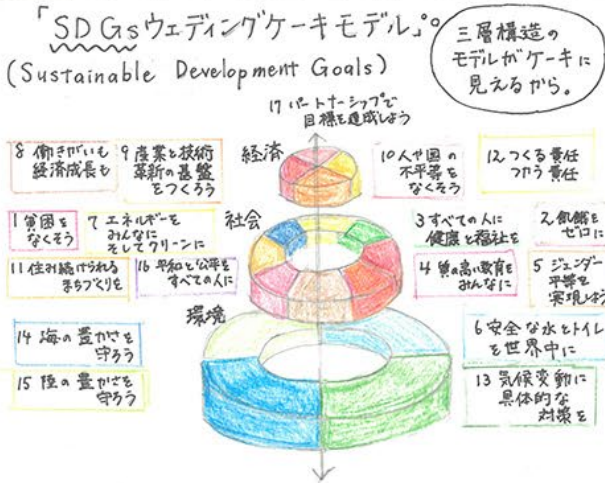 「SDGsウェディングケーキモデル」
(Sustainable Development Goals)
三層構造の
モデルがケーキに
見えるから。
17 パートナーシップで
目標を達成しよう
8 働きがいも
経済成長も
9 産業と技術
革新の基盤
をつくろう
経済
10 人や国の
不平等を
なくそう
12 つくる責任
つかう責任
1 貧困を
なくそう
7 エネルギーを
みんなに
そしてクリーンに
社会
3 すべての人に
健康と福祉を
2 飢餓を
ゼロに
11 住み続けられる
まちづくりを
16 平和と公平を
すべての人に
4 質の高い教育を
みんなに
5 ジェンダー
平等を
実現しよう
環境
14 海の豊かさを
守ろう
6 安全な水とトイレ
を世界中に
15 陸の豊かさを
守ろう
13 気候変動に
具体的な
対策を